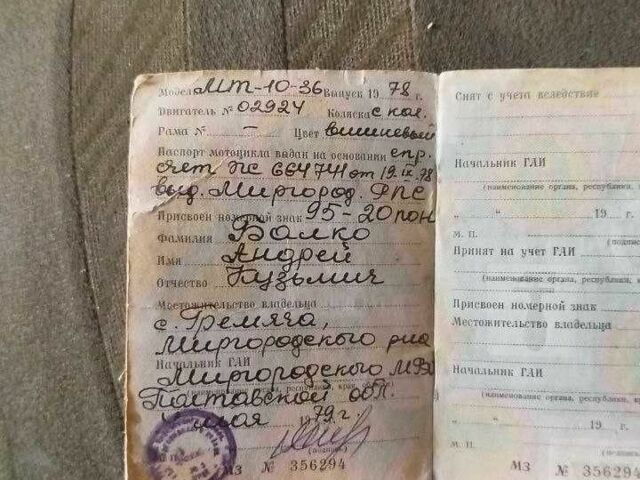 Модель МТ-10-36 Выпуск 1978 г.
Двигатель № 02924 Коляска с кол.
Рама № — Цвет вишневый
Паспорт мотоцикла выдан на основании спр.
счет ПС 664741 от 19.IX.78
выд. Миргород. РПС
Присвоен номерной знак 95-20 пон
Фамилия Балко
Имя Андрей
Отчество Кузьмич
Местожительство владельца
с. Гремяча,
Миргородского р-на
Начальник ГАИ
Миргородского
Полтавской обл.
79 г.
(подпись)
МЗ № 356294
Снят с учета вследствие
Начальник ГАИ
(наименование органа, республики,
" " 19 г.
М. П.
Принят на учет ГАИ
(наименование органа, республики,
Присвоен номерной знак
Местожительство владельца
Начальник ГАИ
(наименование органа, республики,
" " 19 г.
М. П.
МЗ № 356294